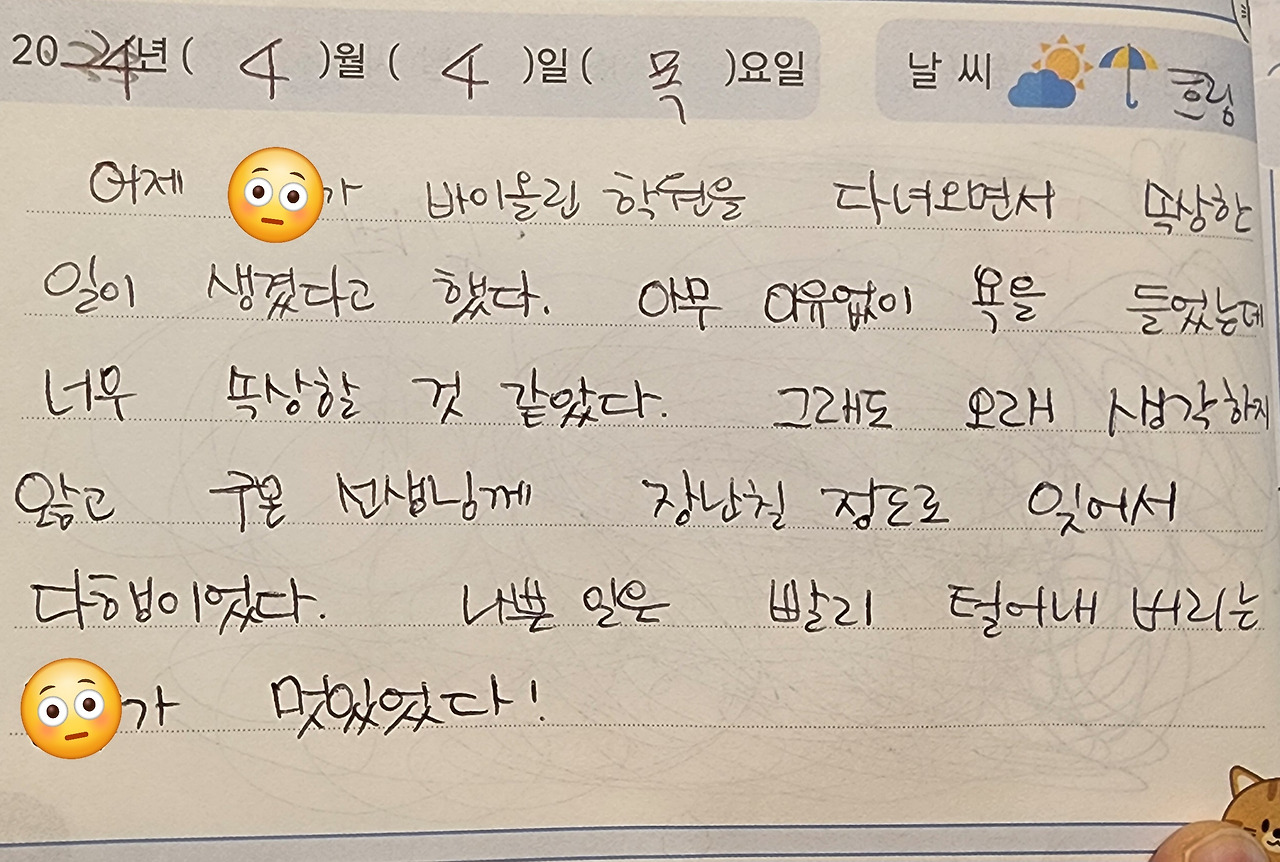 2024년( 4 )월( 4 )일( 목 )요일 날씨 흐림
어제 가 바이올린 학원을 다녀오면서 속상한
일이 생겼다고 했다. 아무 이유없이 욕을 들었는데
너무 속상할 것 같았다. 그래도 오래 생각하지
않고 구몬 선생님께 장난칠 정도로 잊어서
다행이었다. 나쁜 일은 빨리 털어내 버리는
가 멋있었다!